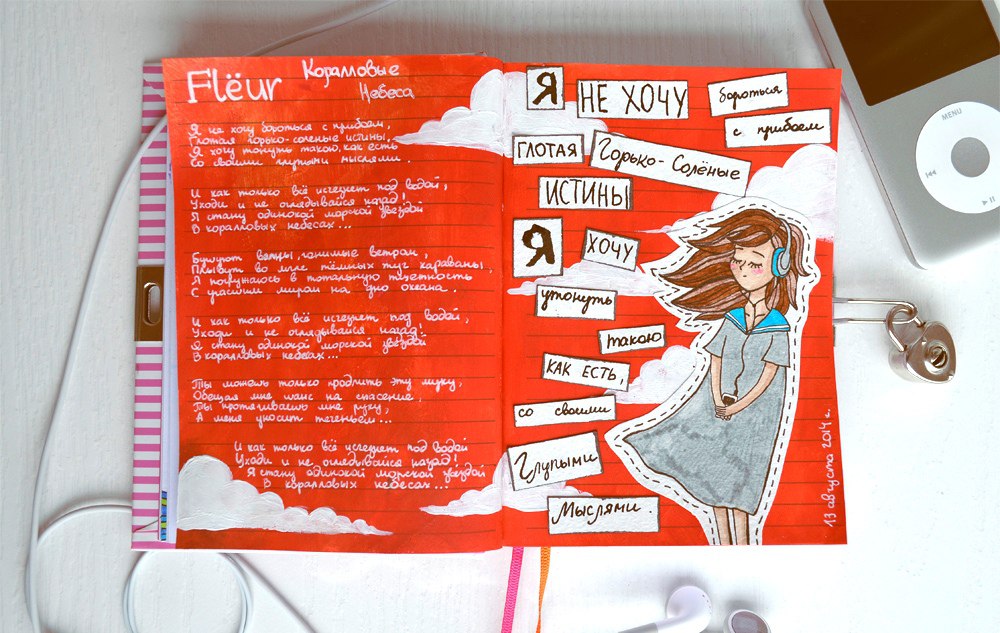 Flëur Коралловые
Небеса
Я не хочу бороться с прибоем,
Глотая горько-солёные истины,
Я хочу тонуть такою, как есть
Со своими глупыми мыслями.
И как только всё исчезнет под водой,
Уходи и не оглядывайся назад!
Я стану одинокой морской звездой
В коралловых небесах...
Бушуют ветры, гонимые ветром,
Плывут во мгле тёмных туч караваны,
Я погружаюсь в тотальную тщетность
С угасшим миром на дно океана.
И как только всё исчезнет под водой,
Уходи и не оглядывайся назад!
Я стану одинокой морской звездой
В коралловых небесах...
Ты можешь только продлить эту муку,
Обещая мне шанс на спасение,
Ты протягиваешь мне руку,
А меня уносит теченьем...
И как только всё исчезнет под водой
Уходи и не оглядывайся назад!
Я стану одинокой морской звездой
В коралловых небесах...
Я НЕ ХОЧУ бороться
с прибоем
ГЛОТАЯ Горько-Солёные
ИСТИНЫ
Я ХОЧУ
утонуть
такою
КАК ЕСТЬ,
со своими
Глупыми
Мыслями.
13 августа 2014 г.
MENU